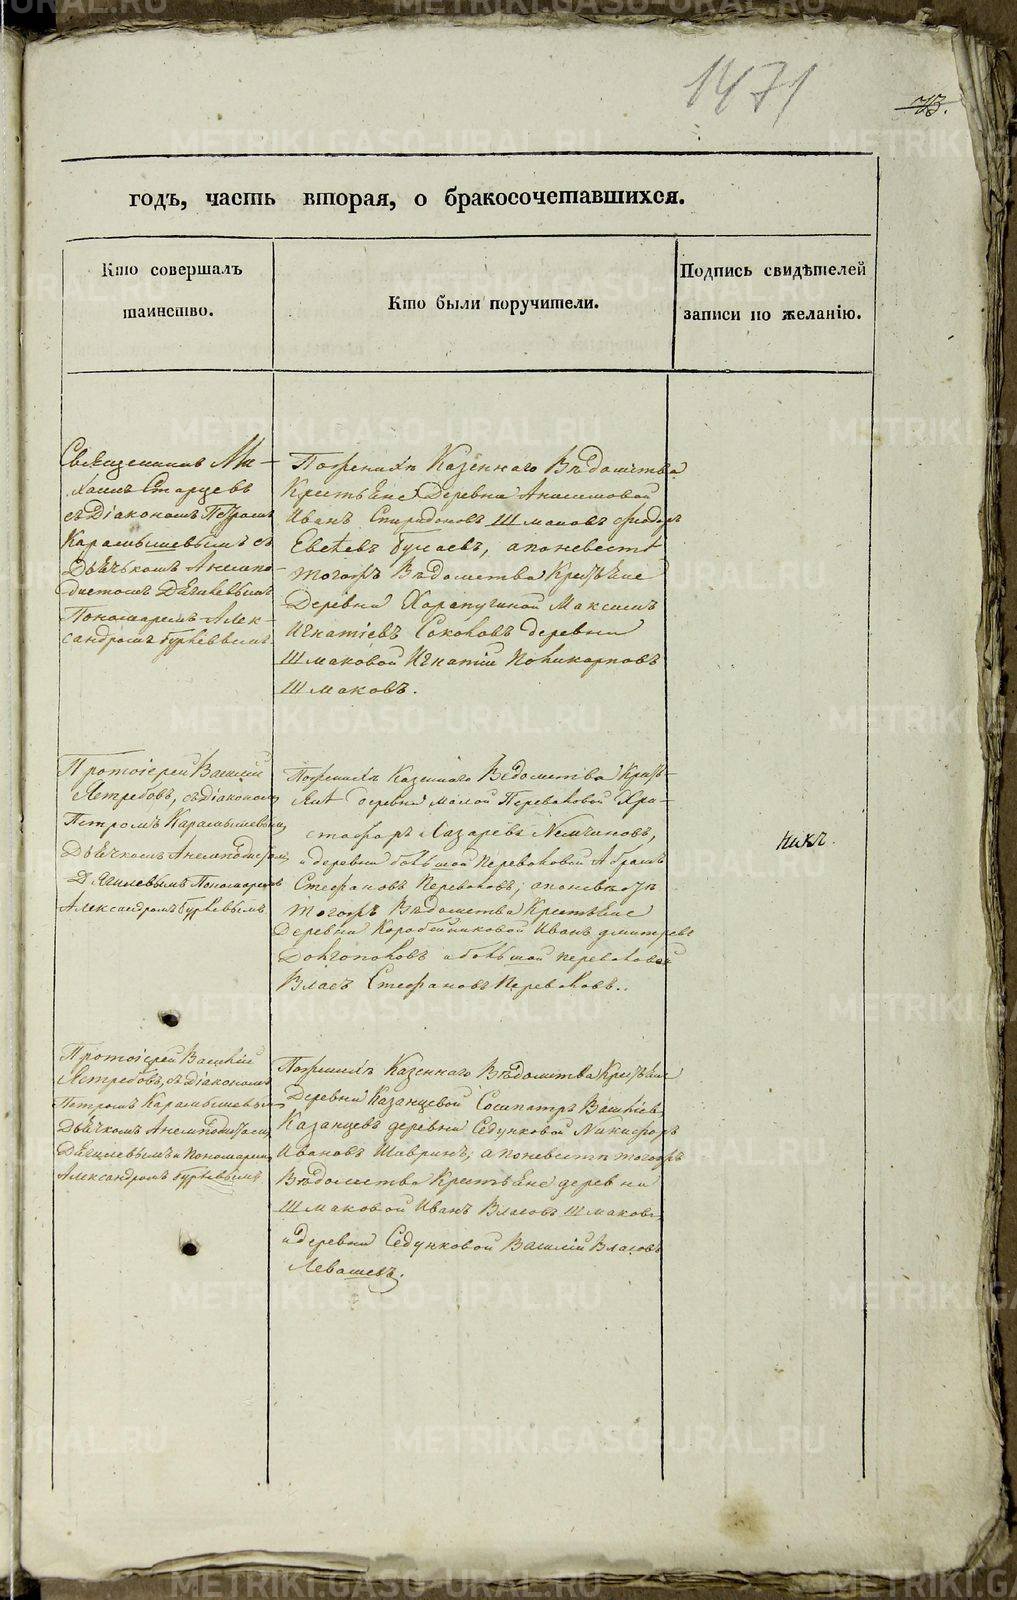 1471
73.
годъ, часть вторая, о бракосочетавшихся.
Кто совершалъ
таинство.
Кто были поручители.
Подпись свидѣтелей
записи по желанію.
Священникъ Ми-
хаилъ Старцевъ
съ Діакономъ Петромъ
Карамышевымъ съ
Дьячкомъ Анемпо-
дистомъ Дягилевымъ
Пономаремъ Алек-
сандромъ
Поженихѣ Казеннаго Вѣдомства
Крестьяне Деревни Анисимовой
Иванъ Спиридоновъ Шмаковъ Ѳеодоръ
а поневестѣ
тогожъ Вѣдомства Крестьяне
Деревни Максимъ
Игнатіевъ Соколовъ деревни
Шмаковой Игнатій Поликарповъ
Шмаковъ.
Протоіерей Василій
Ястребовъ, съ діакономъ
Петромъ Карамышевымъ,
Дьячкомъ Анемподистомъ
Дягилевымъ Пономаремъ
Александромъ
Поженихѣ Казеннаго Вѣдомства Крест-
яне деревни малой Переваловой Хри-
стофоръ Лазаревъ Немчиновъ,
и деревни большой Переваловой Абрамъ
Стефановъ Переваловъ; а поневестѣ
тогожъ Вѣдомства Крестьяне
Деревни Коробейниковой Иванъ Дмитревъ
Долгополовъ и большой Переваловой
Власъ Стефановъ Переваловъ.
Протоіерей Василій
Ястребовъ, съ діакономъ
Петромъ Карамышевымъ
Дьячкомъ Анемподистомъ
Дягилевымъ и Пономаремъ
Александромъ
Поженихѣ Казеннаго Вѣдомства Крестьяне
Деревни Казанцевой Сосипатръ Васильевъ
Казанцевъ деревни Седунковой Никифоръ
Ивановъ Шавринъ; а поневестѣ тогожъ
Вѣдомства Крестьяне деревни
Шмаковой Иванъ Власовъ Шмаковъ
и деревни Седунковой Василій Власовъ
Левашевъ.